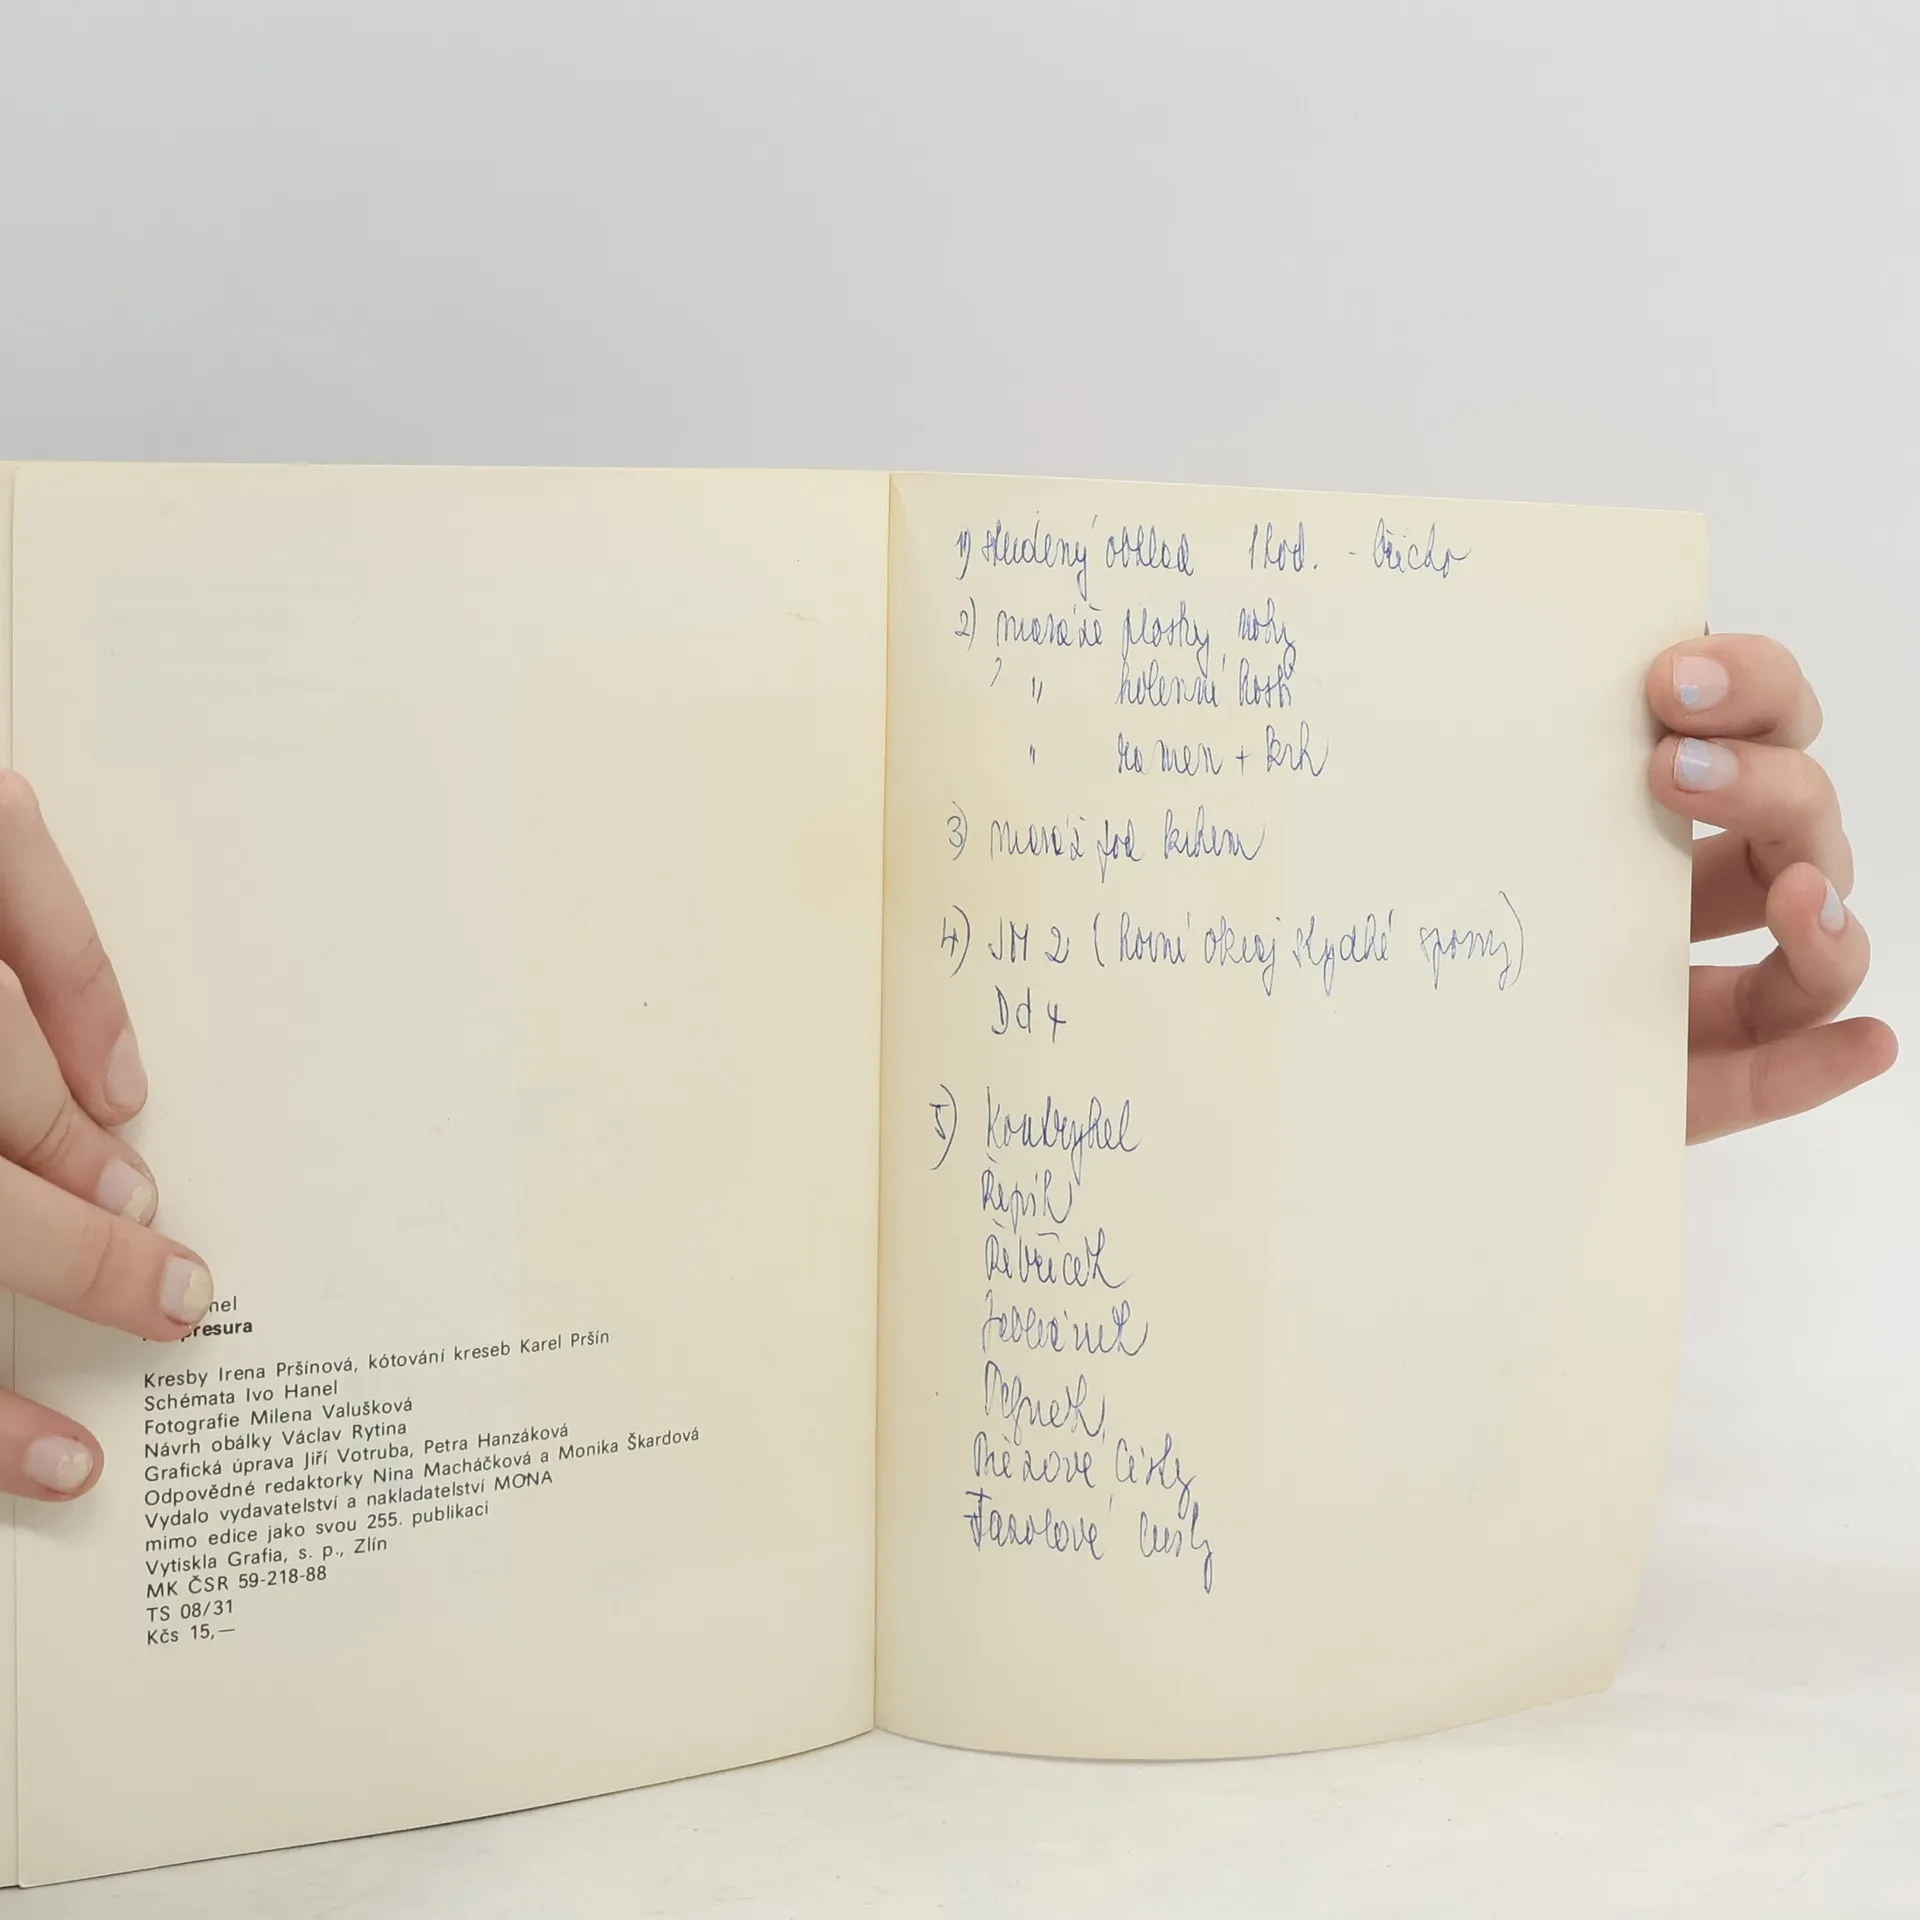 nel
presura
Kresby Irena Pršínová, kótování kreseb Karel Pršín
Schémata Ivo Hanel
Fotografie Milena Valušková
Návrh obálky Václav Rytina
Grafická úprava Jiří Votruba, Petra Hanzáková
Odpovědné redaktorky Nina Macháčková a Monika Škardová
Vydalo vydavatelství a nakladatelství MONA
mimo edice jako svou 255. publikaci
Vytiskla Grafia, s. p., Zlín
MK ČSR 59-218-88
TS 08/31
Kčs 15,—
1) studený obklad 1 hod. - břicho
2) masáže plosky nohy
" holenní kosti
" ramen + krk
3) masáž pod krkem
4) JM 2 (horní okraj stydké spony)
Dd 4
5) Kontryhel
Řepík
Řebříček
Jablečník
Březové listy
Fazolové lusky